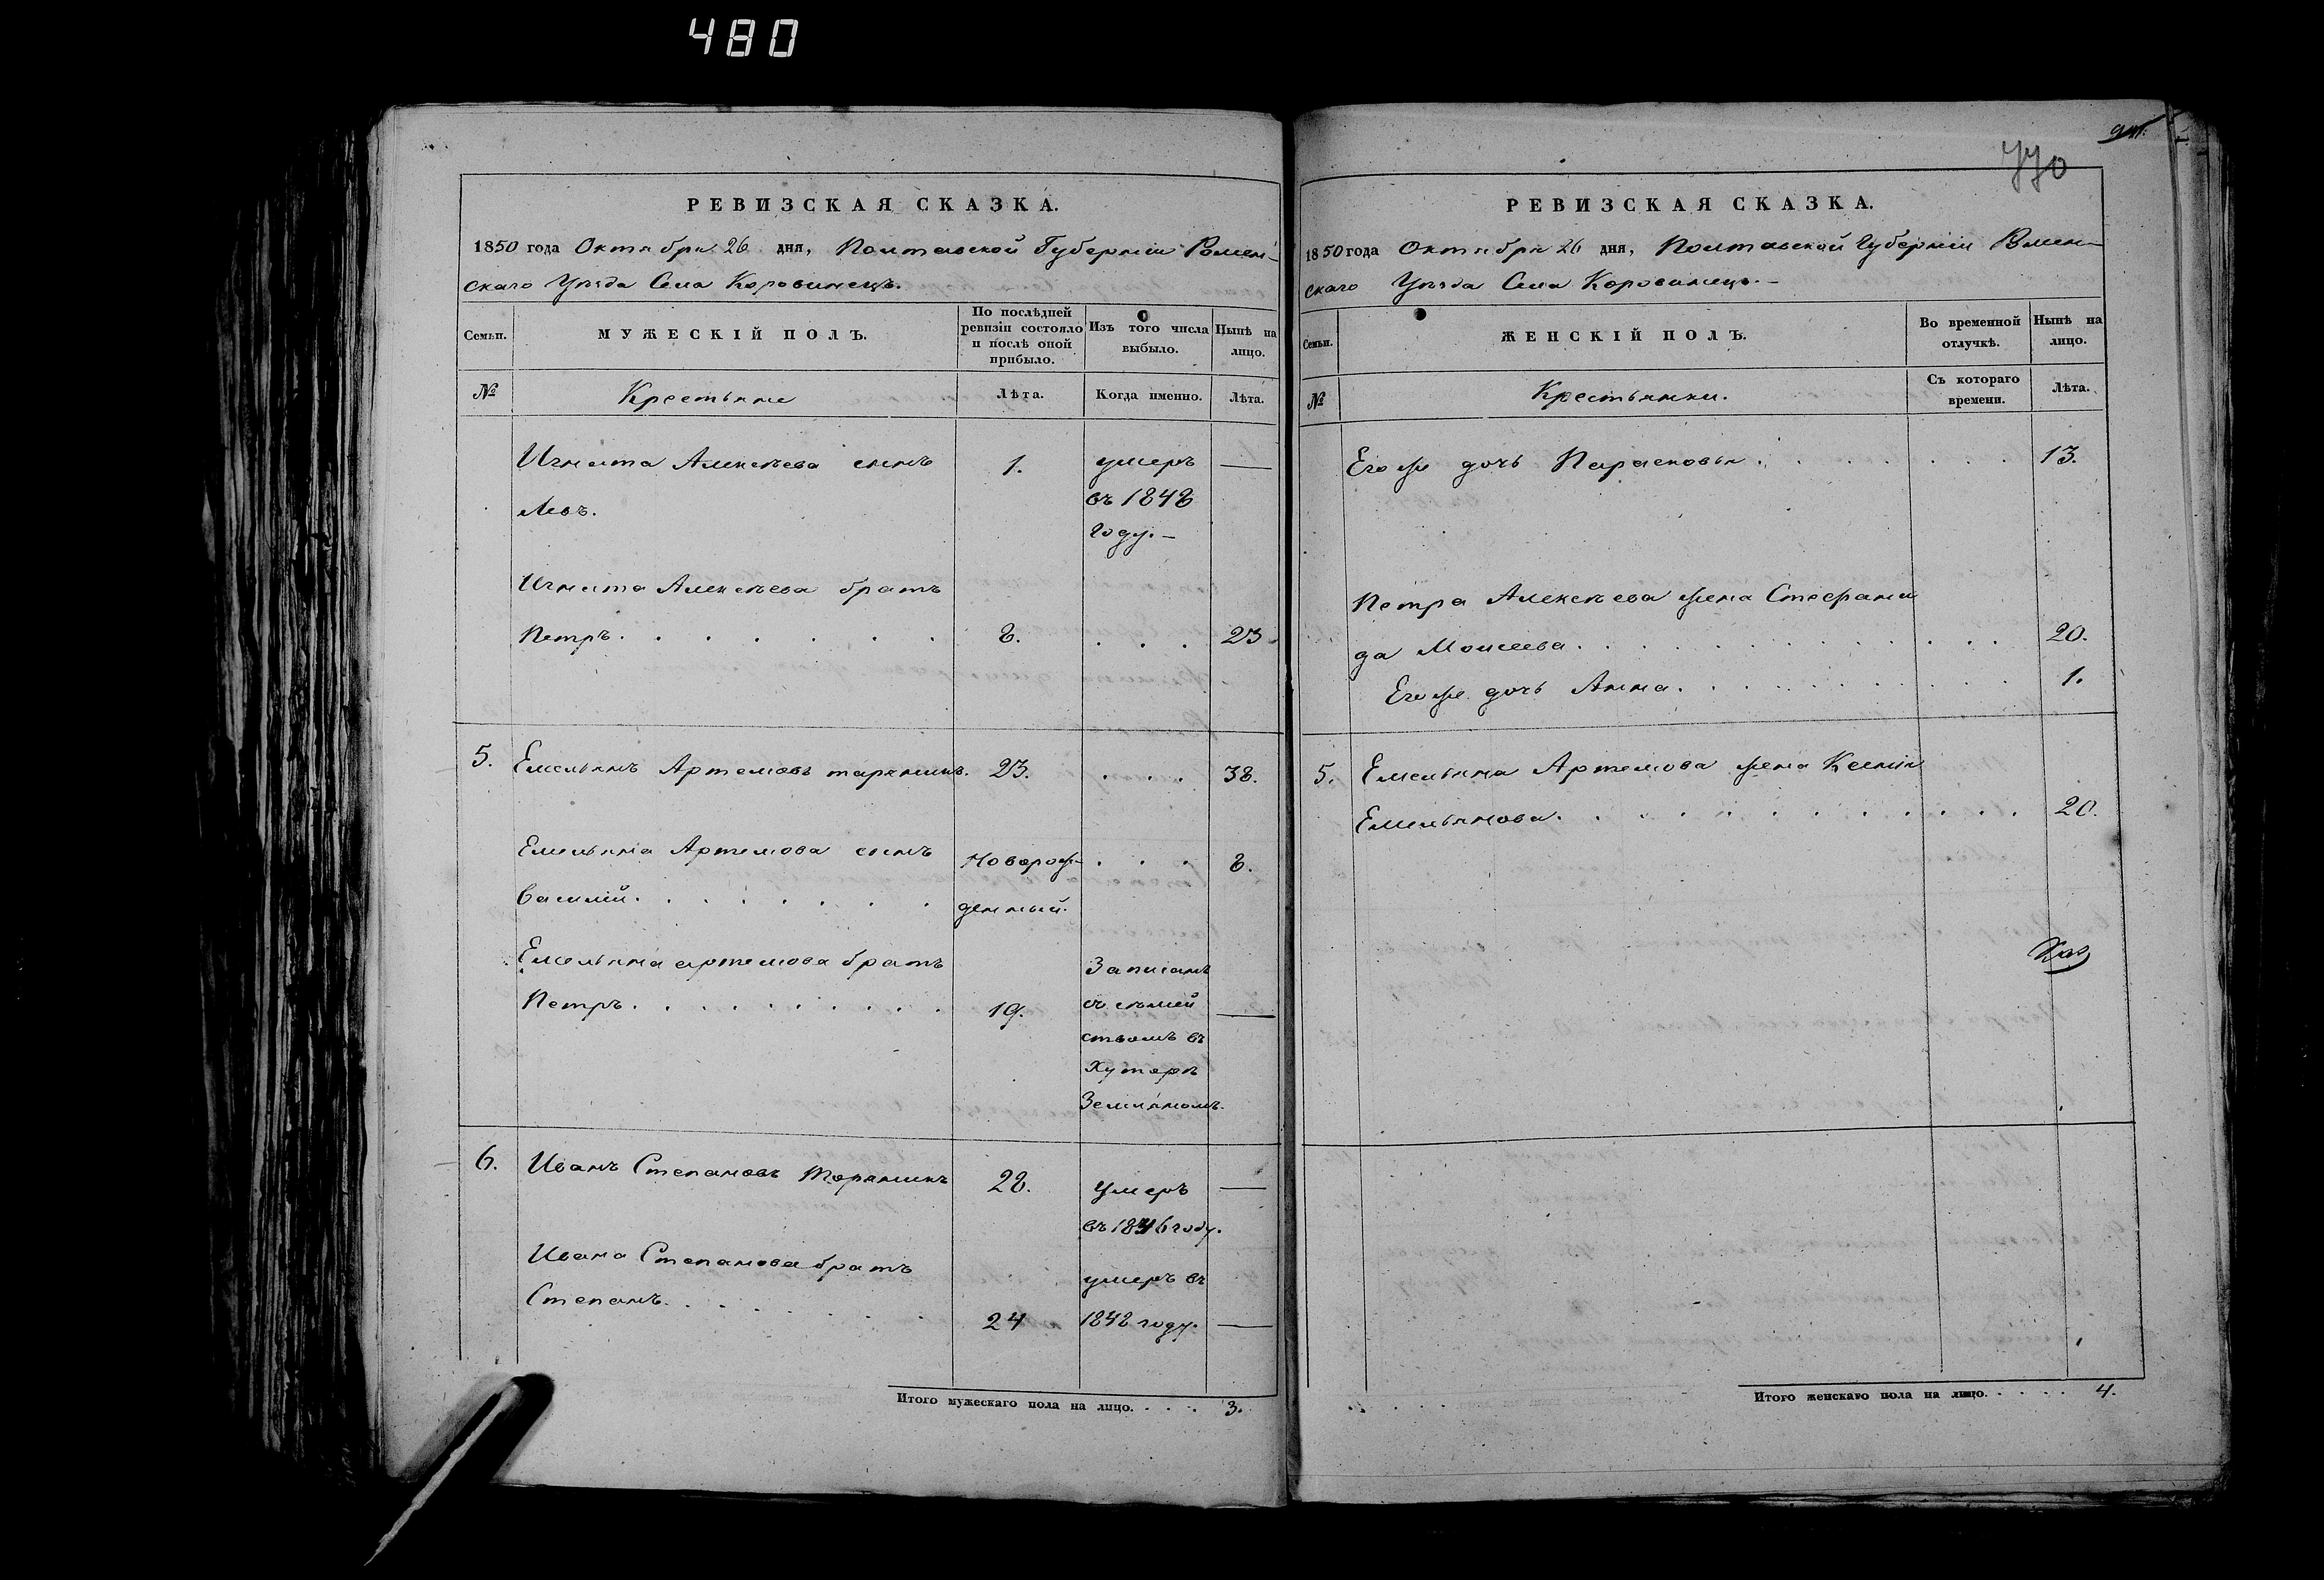 480
РЕВИЗСКАЯ СКАЗКА.
1850 года Октября 26 дня, Полтавской Губерніи Ромен-
скаго Уѣзда Села Коровинецъ.
Семьи.
МУЖЕСКІЙ ПОЛЪ.
По послѣдней
ревизіи состояло
и послѣ оной
прибыло.
Изъ того числа
выбыло.
Нынѣ на
лицо.
№
Крестьяне
Лѣта.
Когда именно.
Лѣта.
Игната Алексѣева сынъ 1. умеръ —
Левъ. въ 1848
году. —
Игната Алексѣева братъ
Петръ. 8. 23
5. Емельянъ Артемовъ 23. 38.
Емельяна Артемова сынъ Оворож- 8.
Василій. денный.
Емельяна Артемова братъ Записанъ
Петръ. 19. съ сѣмей —
ствомъ въ
Хуторѣ
Землянomъ.
6. Иванъ Степановъ 28. умеръ —
въ 1846 году.
Ивана Степанова братъ умеръ въ
Степанъ. 24 1848 году. —
Итого мужескаго пола на лицо. 3.
770
РЕВИЗСКАЯ СКАЗКА.
1850 года Октября 26 дня, Полтавской Губерніи Ромен-
скаго Уѣзда Села Коровинецъ. —
Семьи.
ЖЕНСКІЙ ПОЛЪ.
Во временной
отлучкѣ.
Нынѣ на
лицо.
№
Крестьянки.
Съ котораго
времени.
Лѣта.
Его же дочь Парасковья. 13.
Петра Алексѣева жена Стефани
да Моисеева. 20.
Его же дочь Анна. 1.
5. Емельяна Артемова жена Ксенія
Емельянова. 20.
Итого женскаго пола на лицо. 4.